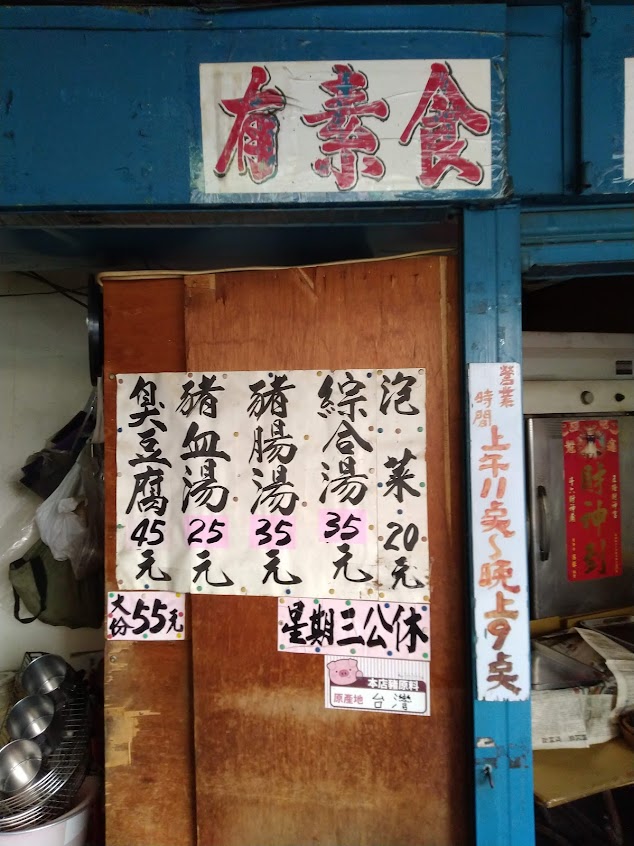 有素食
泡菜20元
綜合湯35元
豬腸湯35元
豬血湯25元
臭豆腐45元
大份55元
星期三公休
本店豬原料
原產地 台灣
營業時間
上午11点~晚上9点
財神到